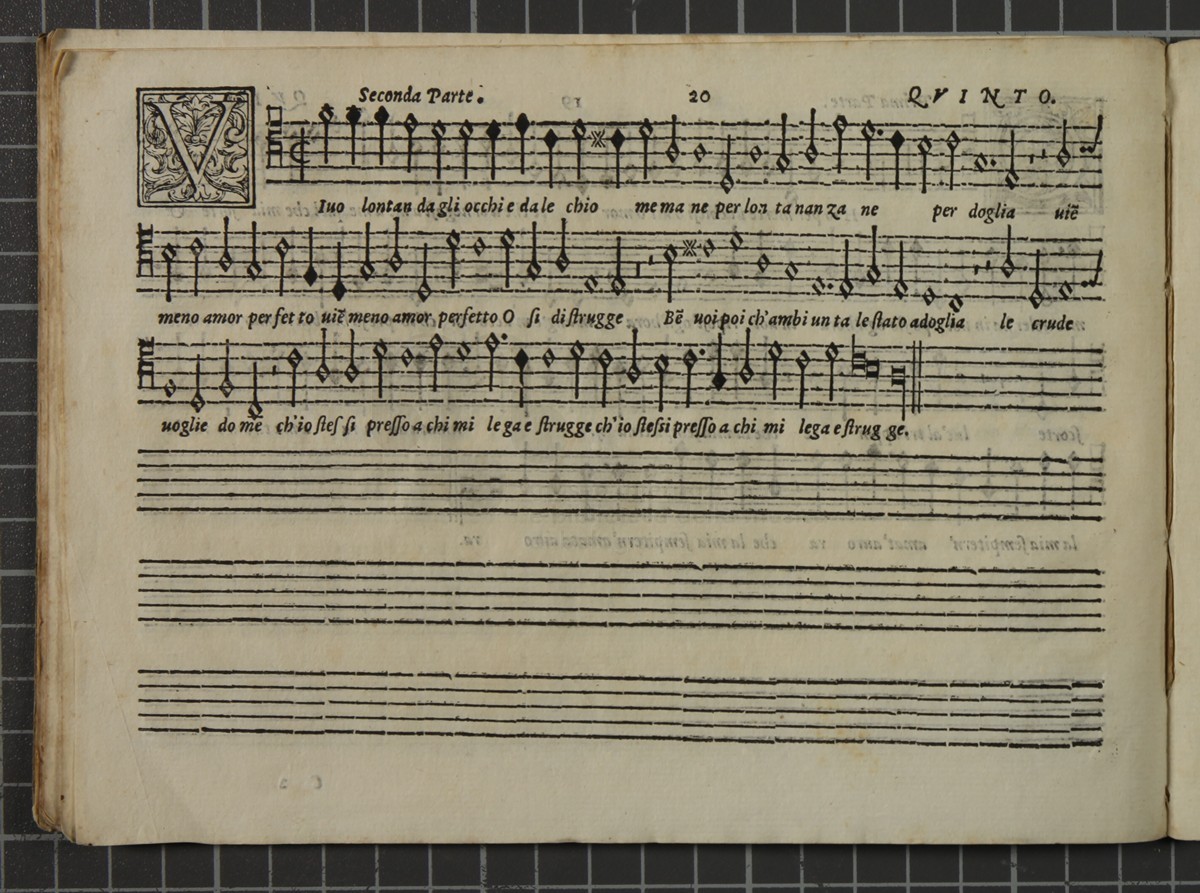 Seconda Parte. 20 QVINTO.
V Iuo lontan da gli occhi e da le chio me ma ne per lon ta nan za ne per doglia uiẽ
meno amor perfetto uiẽ meno amor perfetto O si distrugge Bẽ uoi poi ch'ambi un ta le stato adoglia le crude
uoglie do mẽ ch'io stes si presso a chi mi le ga e strugge ch'io stessi presso a chi mi lega e strug ge.